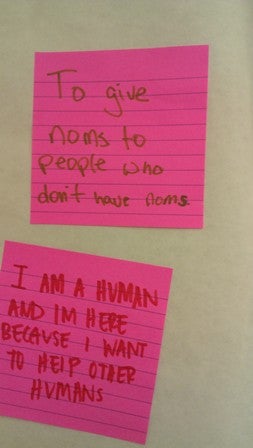 To give
noms to
people who
don't have noms.
I AM A HUMAN
AND IM HERE
BECAUSE I WANT
TO HELP OTHER
HUMANS